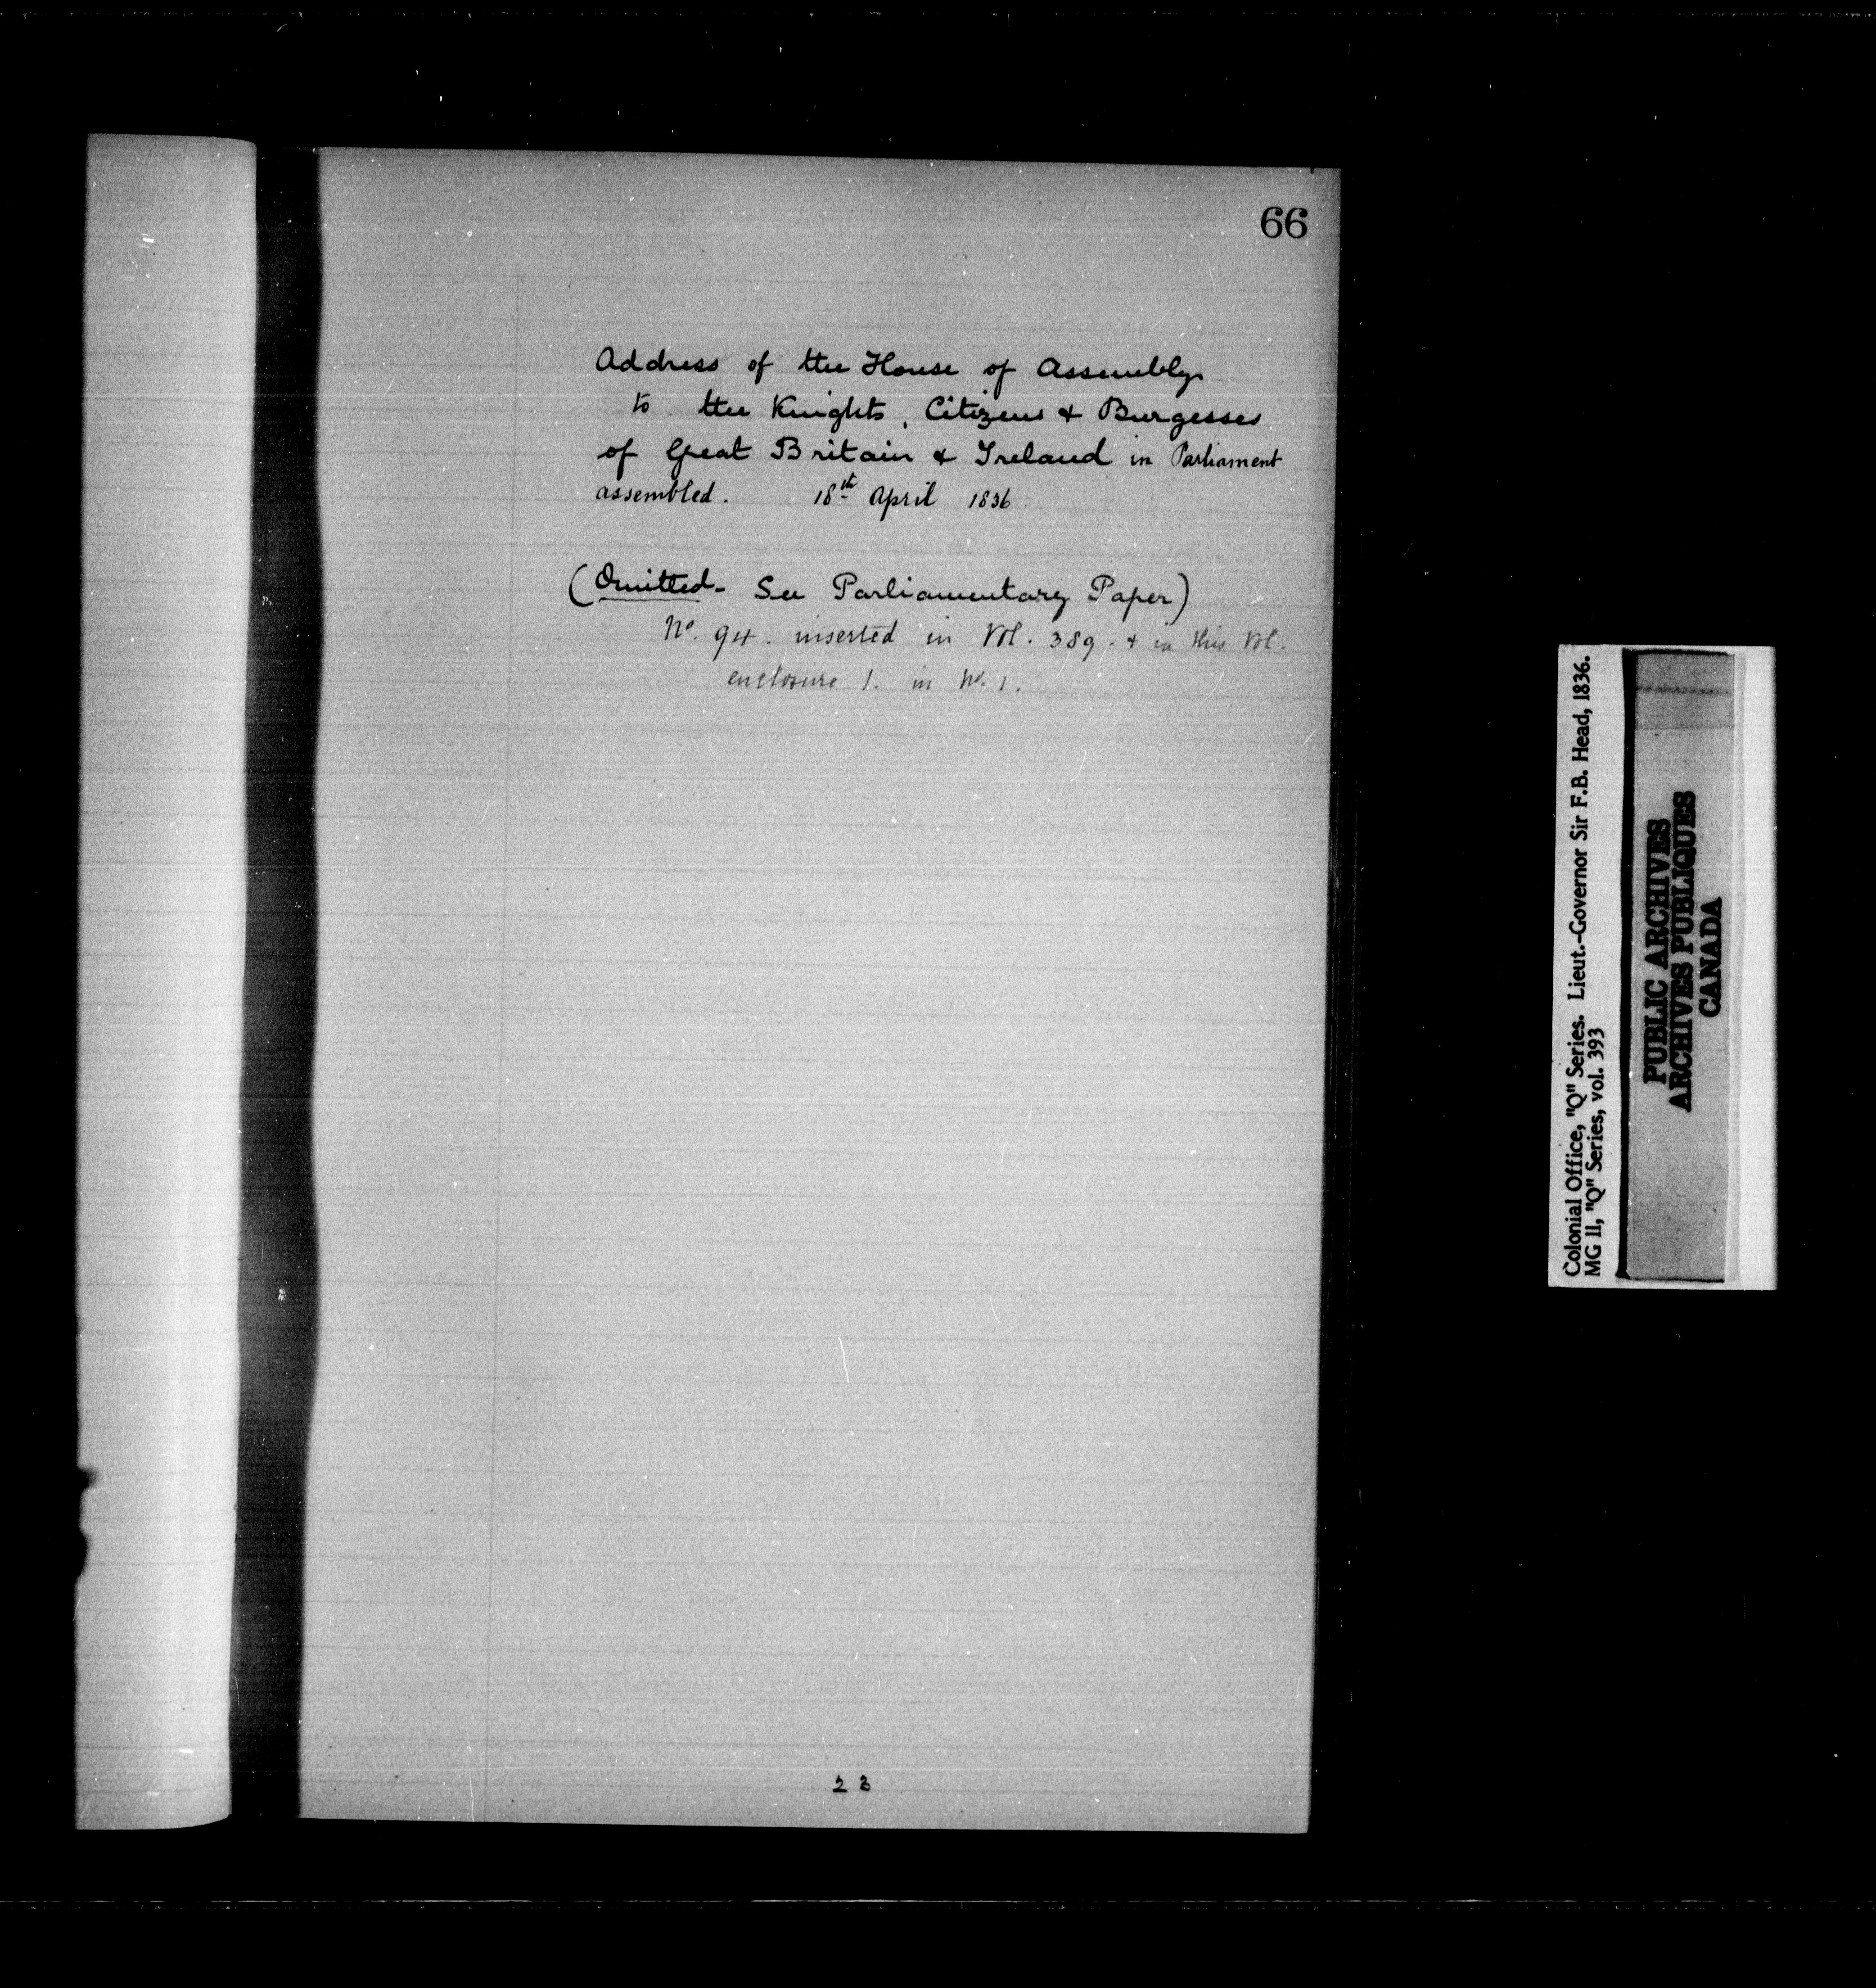 66
Address of the House of Assembly
to the Knights, Citizens & Burgesses
of Great Britain & Ireland in Parliament
assembled. 18th April 1836
(Omitted - See Parliamentary Paper)
No. 94. inserted in Vol. 389. & in this Vol.
enclosure 1. in No. 1.
23
Colonial Office, "Q" Series. Lieut.-Governor Sir F.B. Head, 1836.
MG 11, "Q" Series, vol. 393
PUBLIC ARCHIVES
ARCHIVES PUBLIQUES
CANADA